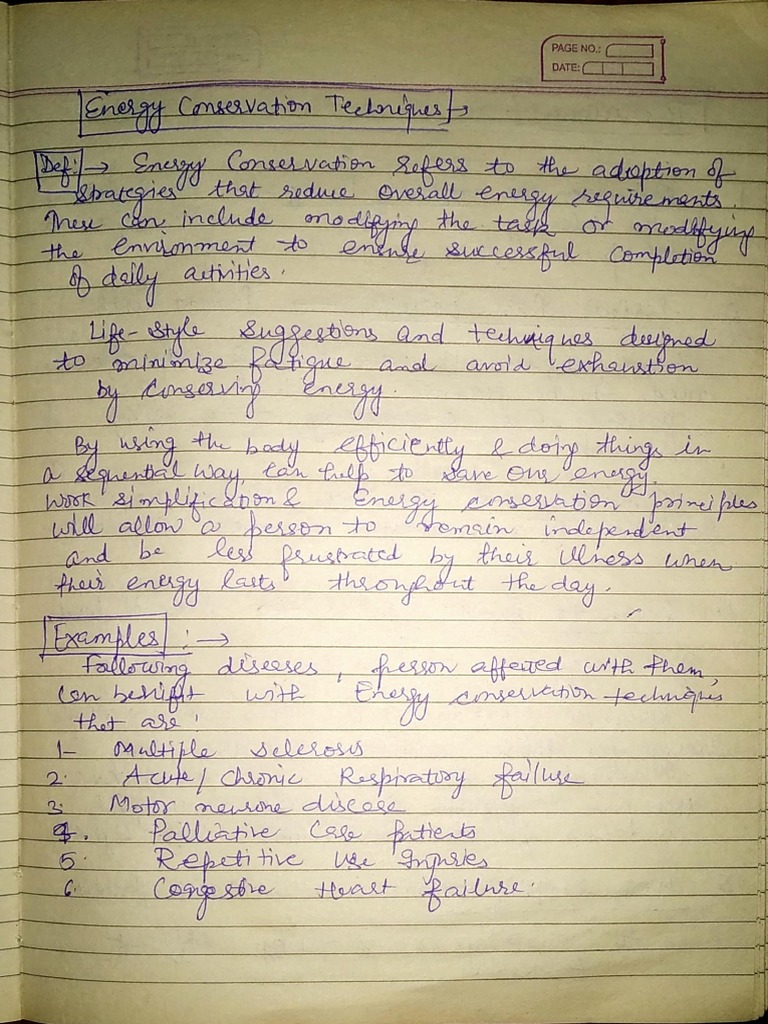 PAGE NO.:
DATE:
Energy Conservation Techniques →
Def: → Energy Conservation refers to the adoption of
strategies that reduce overall energy requirements.
These can include modifying the task or modifying
the environment to ensure successful completion
of daily activities.
Life-style suggestions and techniques designed
to minimize fatigue and avoid exhaustion
by conserving energy.
By using the body efficiently & doing things in
a sequential way, can help to save our energy.
Work simplification & Energy conservation principles
will allow a person to remain independent
and be less frustrated by their illness when
their energy lasts throughout the day.
Examples :→
Following diseases, person affected with them,
can benifit with Energy conservation techniques
that are :
1- Multiple sclerosis
2. Acute/Chronic Respiratory failure
3. Motor neurone disease
4. Palliative Care patients
5. Repetitive use Injuries
6. Congestive Heart failure.